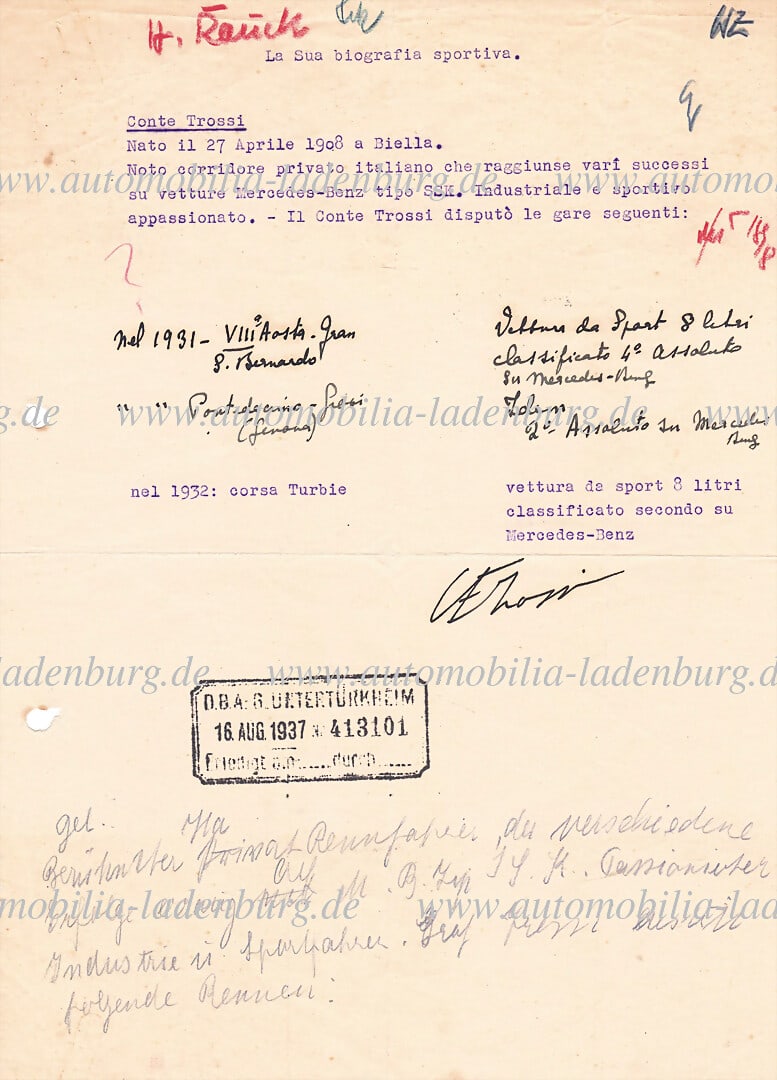 H. Rauck
WZ
La Sua biografia sportiva.
Conte Trossi
Nato il 27 Aprile 1908 a Biella.
Noto corridore privato italiano che raggiunse varî successi
su vetture Mercedes-Benz tipo SSK. Industriale e sportivo
appassionato. - Il Conte Trossi disputò le gare seguenti:
Nel 1931 - VIIIª Aosta - Gran
S. Bernardo
Vettura da Sport 8 litri
classificato 4º Assoluto
su Mercedes-Benz
" " Pontedecimo - Giovi
(Genova)
Idem
2º Assoluto su Mercedes
Benz
nel 1932: corsa Turbie
vettura da sport 8 litri
classificato secondo su
Mercedes-Benz
Trossi
D.B.A.G. UNTERTÜRKHEIM
16. AUG. 1937 № 413101
Erledigt a.o. durch
geb.
Berühmter Privat Rennfahrer, der verschiedene
Erfolge auf M. B. Typ S. S. K. Passionierter
Industrie u. Sportfahrer. Graf Trossi
folgende Rennen:
www.automobilia-ladenburg.de
www.automobilia-ladenburg.de
www.automobilia-ladenburg.de
www.automobilia-ladenburg.de